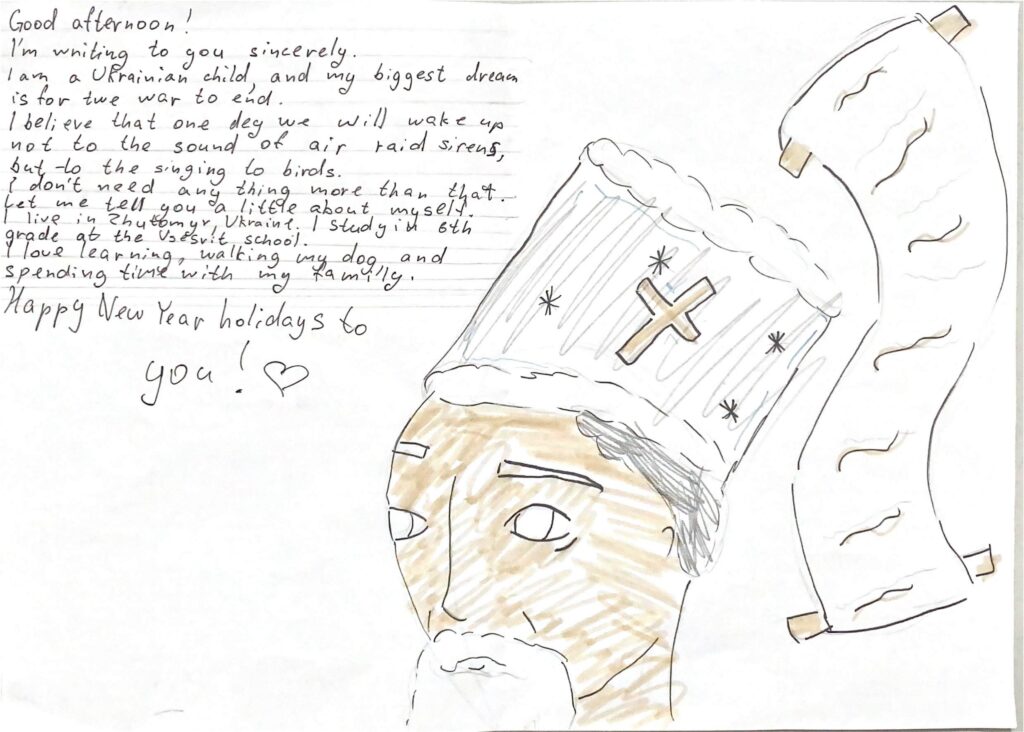 Good afternoon!
I'm writing to you sincerely.
I am a Ukrainian child, and my biggest dream
is for twe war to end.
I believe that one dey we will wake up
not to the sound of air raid sirens,
but to the singing to birds.
I don't need any thing more than that.
Let me tell you a little about myself.
I live in Zhytomyr, Ukraine. I study in 6th
grade at the Vsesvit school.
I love learning, walking my dog and
spending time with my familly.
Happy New Year holidays to
you! ♡